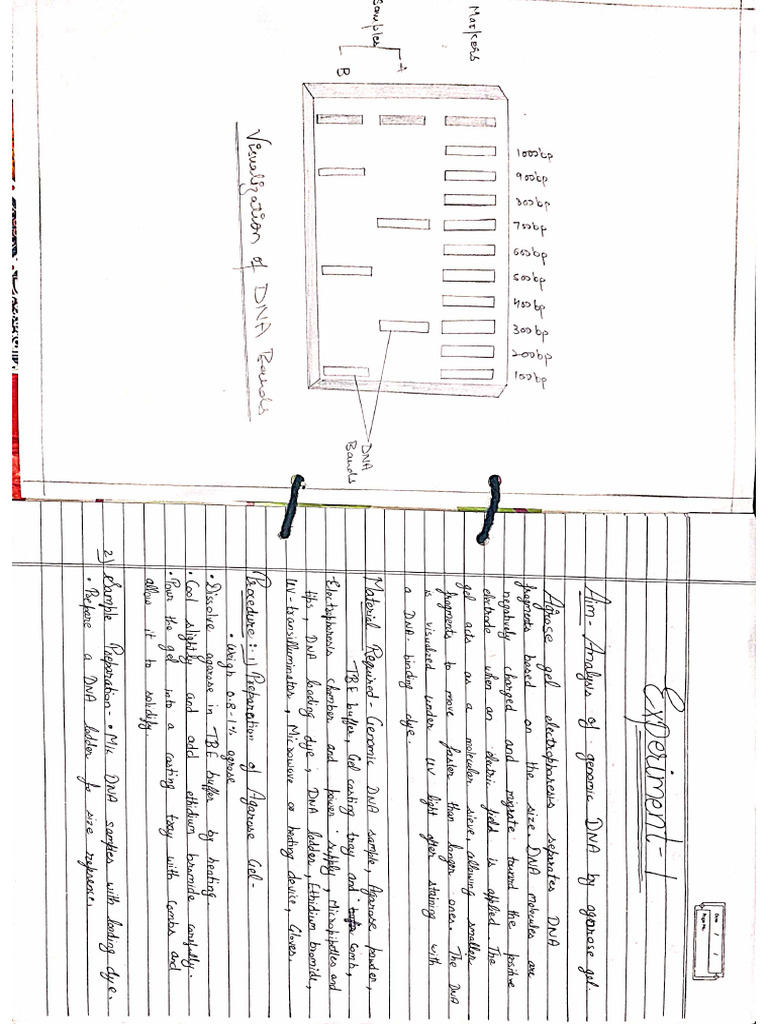 Markers
Samples
A
B
1000bp
900bp
800bp
700bp
600bp
500bp
400bp
300bp
200bp
100bp
DNA
Bands
Visualization of DNA Bands
Date / /
Page No.
Experiment-1
Aim- Analysis of genomic DNA by agarose gel.
Agarose gel electrophoresis separates DNA
fragments based on the size. DNA molecules are
negatively charged and migrate toward the positive
electrode when an electric field is applied. The
gel acts as a molecular sieve, allowing smaller
fragments to move faster than longer ones. The DNA
is visualized under UV light after staining with
a DNA-binding dye.
Material Required- Genomic DNA sample, Agarose powder,
TBE buffer, Gel casting tray and comb,
Electrophoresis chamber and power supply, Micropipettes and
tips, DNA loading dye, DNA ladder, Ethidium bromide,
UV-transilluminator, Microwave or heating device, Gloves.
Procedure:- 1) Preparation of Agarose Gel-
• Weigh 0.8-1% agrose
• Dissolve agarose in TBE buffer by heating
• Cool slightly and add ethidium bromide carefully.
• Pour the gel into a casting tray with combs and
allow it to solidify
2) Sample Preparation- • Mix DNA samples with loading dye.
• Prepare a DNA ladder for size reference.